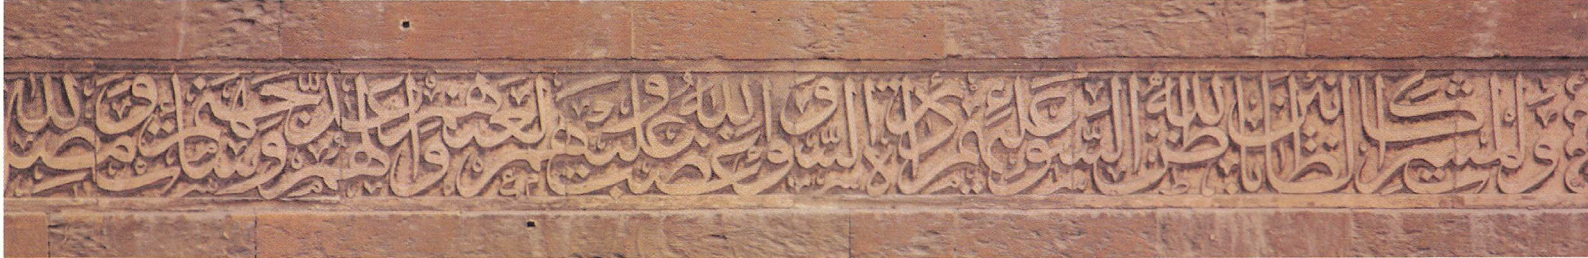 والمشركات الظانين بالله ظن السوء عليهم دائرة السوء وغضب الله عليهم ولعنهم وأعد لهم جهنم وساءت مصيرا ولله